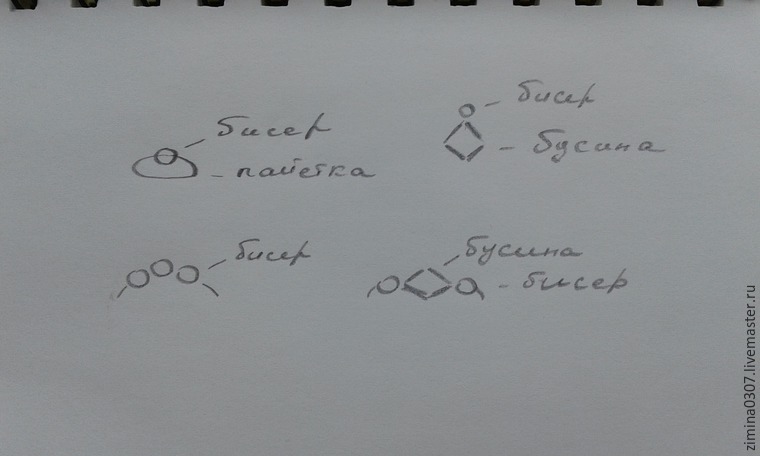 бисер
пайетка
бисер
бусина
бисер
бусина
бисер
zimina0307.livemaster.ru